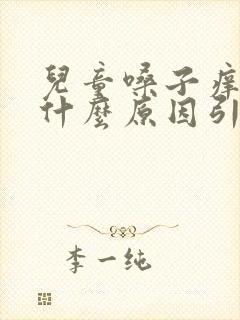 兒童嗓子痒
什麼原因引
李一纯